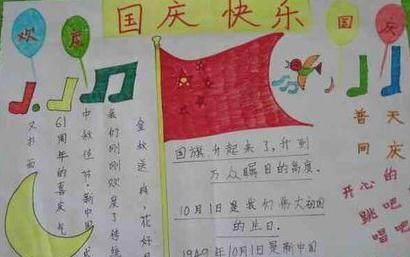 国庆快乐
欢度
国庆
金秋送爽，花好月
我们刚刚欢度了传统
中秋佳节，新中国成
61周年的喜庆气
又扑面
国旗升起来了，升到
万众瞩目的高度。
10月1日是我们伟大祖国
的生日。
1949年10月1日是新中国
普天
同庆
开心的
跳吧
唱吧